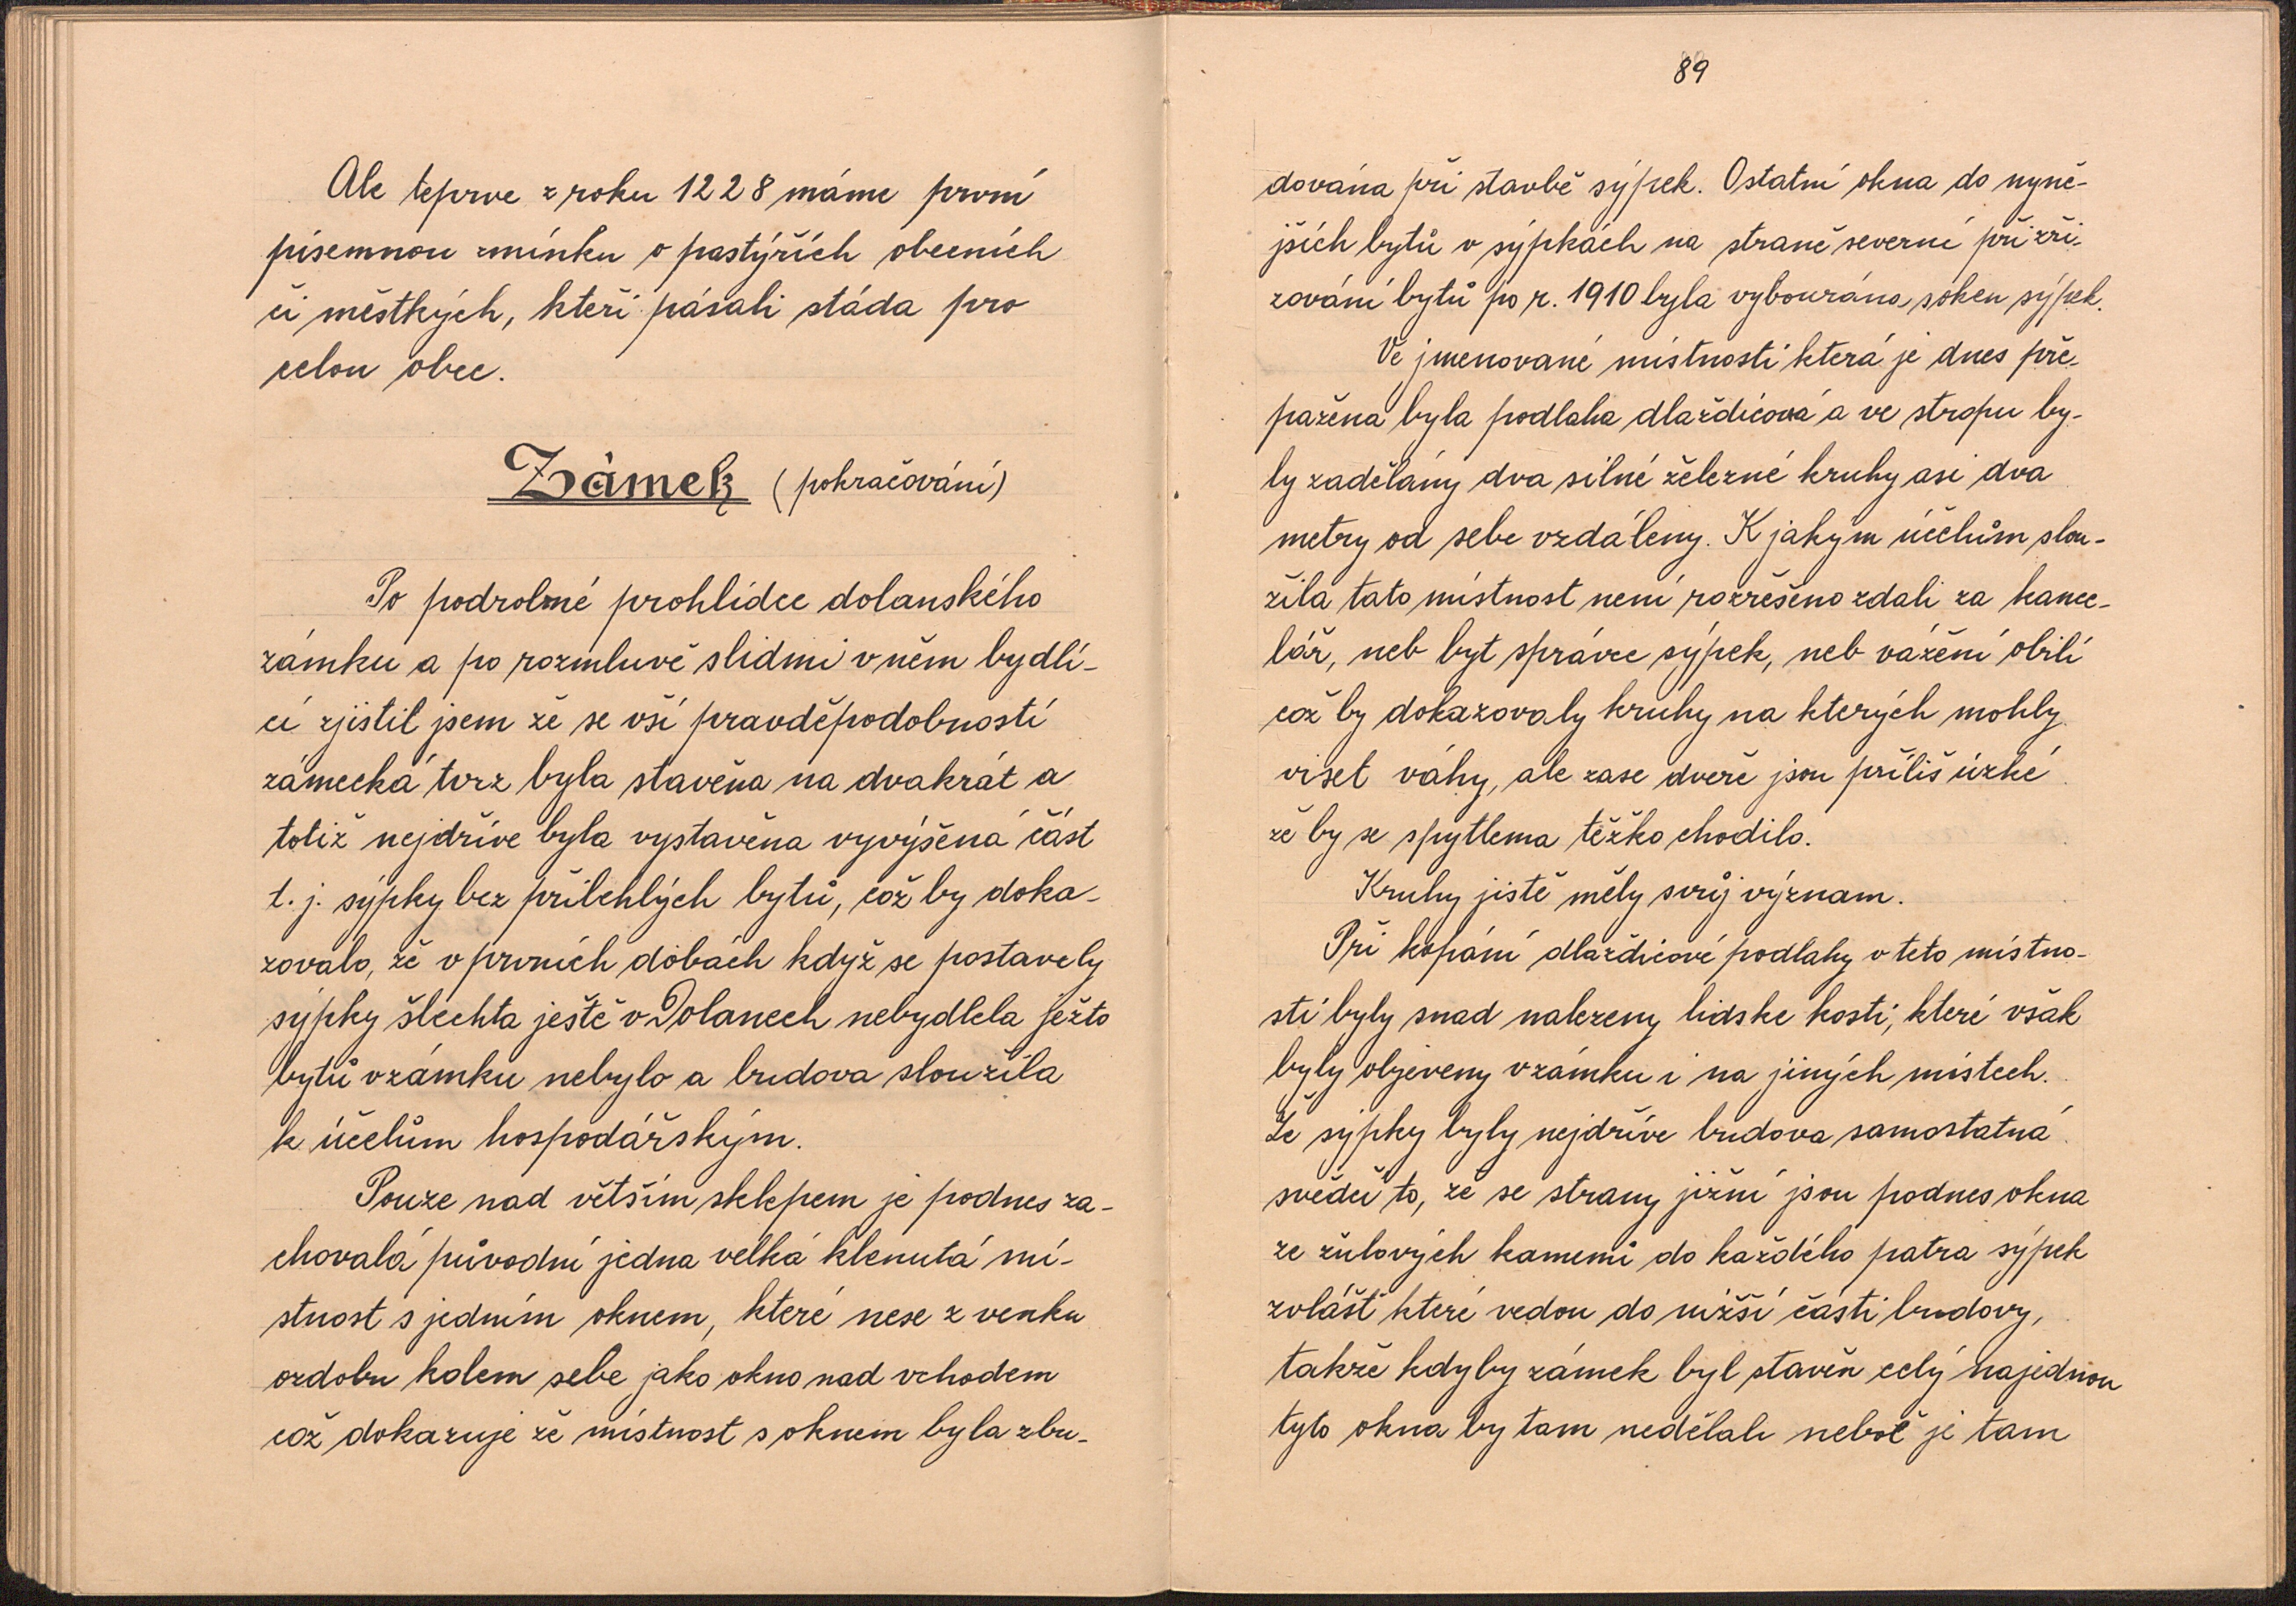 Ale teprve z roku 1228 máme první
písemnou zmínku o pastýřích obecních
či městkých, kteři pásali stáda pro
celou obec.
Zámek (pokračování)
Po podrobné prohlídce dolanského
zámku a po rozmluvě s lidmi v něm bydlí-
cí zjistil jsem že se vší pravděpodobností
zámecká tvrz byla stavěna na dvakrát a
totiž nejdříve byla vystavěna vyvýšená část
t. j. sýpky bez přilehlých bytů, což by doka-
zovalo, že v prvních dobách když se postavely
sýpky šlechta ještě v Dolanech nebydlela ježto
bytů v zámku nebylo a budova sloužila
k účelům hospodářským.
Pouze nad větším sklepem je podnes za-
chovalá původní jedna velká klenutá mí-
stnost s jedním oknem, které nese z venku
ozdobu kolem sebe jako okno nad vchodem
což dokazuje že místnost s oknem byla zbu-
89
dována při stavbě sýpek. Ostatní okna do nyně-
jších bytů v sýpkách na straně severní při zři-
zování bytů po r. 1910 byla vybourána, s oken sýpek.
Ve jmenované místnosti která je dnes pře-
pažena byla podlaha dlaždicová a ve stropu by-
ly zadělány dva silné železné kruhy asi dva
metry od sebe vzdáleny. K jakým účelům slou-
žila tato místnost není rozřešeno zdali za kance-
lář, neb byt správce sýpek, neb vážení obilí
což by dokazovaly kruhy na kterých mohly
viset váhy, ale zase dveře jsou příliš úzké
že by se s pytlema těžko chodilo.
Kruhy jistě měly svůj význam.
Při kopání dlaždicové podlahy v teto místno-
stí byly snad nalezeny lidske kosti, které však
byly objeveny v zámku i na jiných místech.
Že sýpky byly nejdříve budova samostatná
svědčí to, že se strany jižní jsou podnes okna
ze žulových kamenů do každého patra sýpek
zvlášť které vedou do nižší části budovy,
takže kdyby zámek byl stavěn celý najednou
tyto okna by tam nedělali neboť je tam